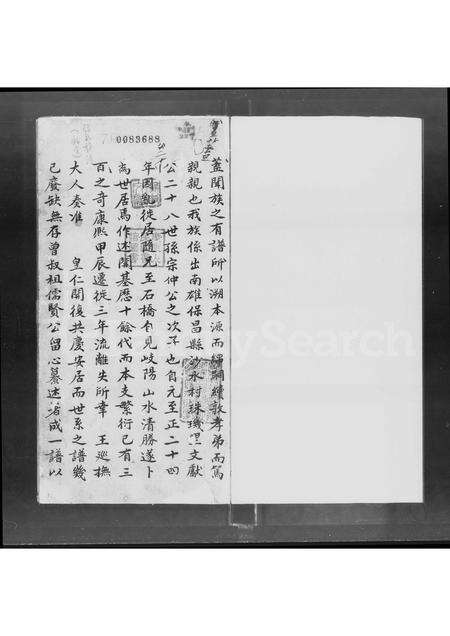 0083688
蓋聞族之有譜所以溯本源而繩嗣續敦孝弟而篤
親親也我族係出南雄保昌縣沙水村珠璣里文獻
公二十八世孫宗仲公之次子也自元至正二十四
年因亂徙居隨兄至石橋句見岐陽山水清勝遂卜
為世居焉作述開基歷十餘代而本支繁衍已有三
百之奇康熙甲辰遷徙三年流離失所幸 王巡撫
大人奏准 皇仁開復共慶安居而世系之譜幾
已廢缺無存曾叔祖儒賢公留心纂述 成一譜以
Search